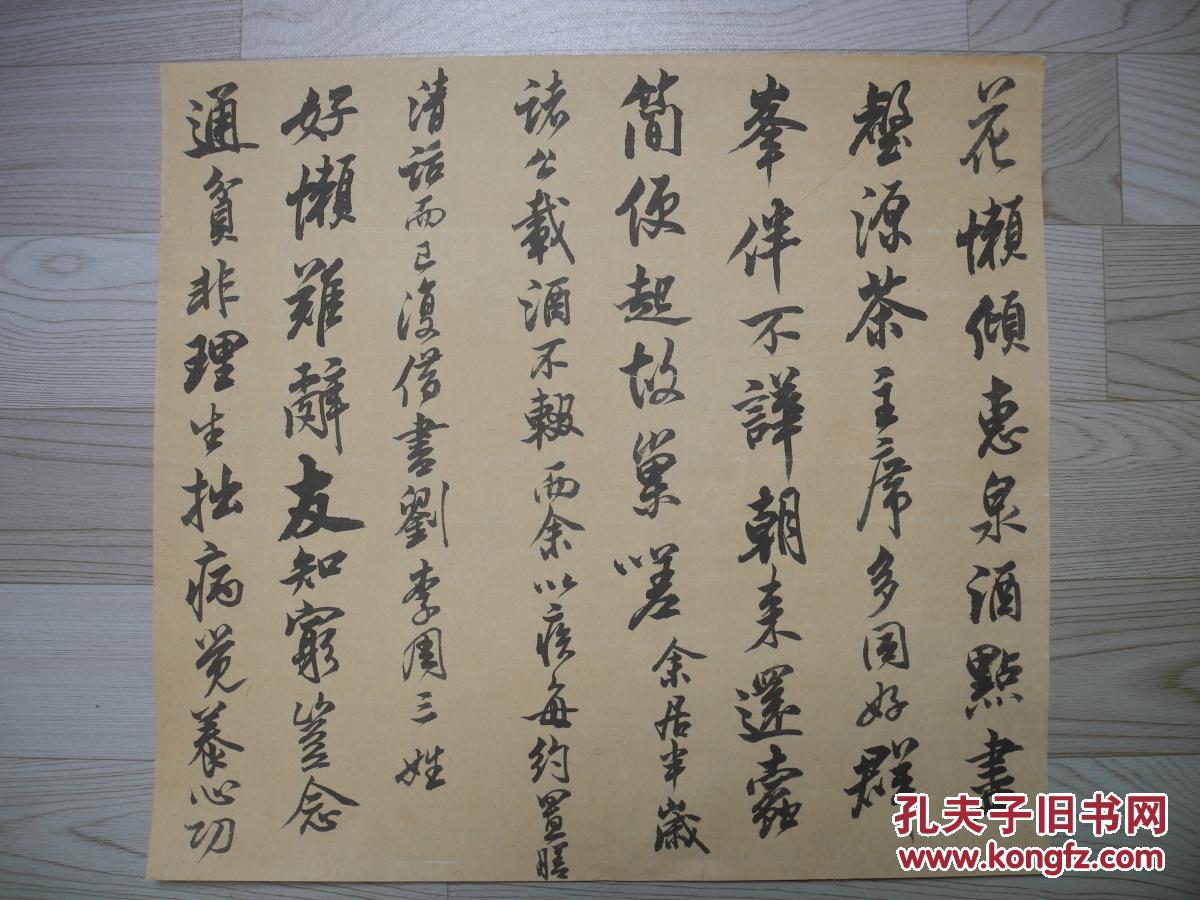 花懒傾惠泉酒點盡
壑源茶主席多同好群
峯伴不譁朝来還蠹
簡便起故巢嗟余居半歲
諸公載酒不輟而余以疾每約置膳
清話而已復借書劉李周三姓
好懶難辭友知窮豈念
通貧非理生拙病覺養心功
孔夫子旧书网
www.kongfz.com